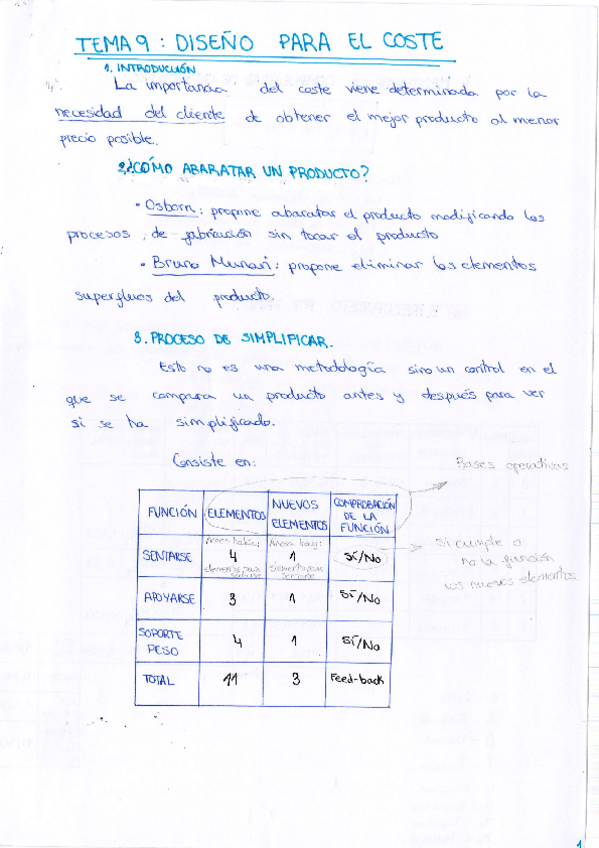 TEMA 9: DISEÑO PARA EL COSTE
1. INTRODUCCIÓN
La importancia del coste viene determinada por la
necesidad del cliente de obtener el mejor producto al menor
precio posible.
2.¿CÓMO ABARATAR UN PRODUCTO?
• Osborn: propone abaratar el producto modificando los
procesos de fabricación sin tocar el producto
• Bruno Munari: propone eliminar los elementos
superfluos del producto.
3. PROCESO DE SIMPLIFICAR.
Esto no es una metodología sino un control en el
que se compara un producto antes y después para ver
si se ha simplificado.
Consiste en:
Bases operativas
FUNCIÓN ELEMENTOS NUEVOS ELEMENTOS COMPROBACIÓN DE LA FUNCIÓN
Antes había: Ahora hay:
SENTARSE 4 1 SÍ/NO
elementos para sentarse 1 elemento para sentarse
Si cumple o
no la función
los nuevos elementos
APOYARSE 3 1 SÍ/NO
SOPORTE PESO 4 1 SÍ/NO
TOTAL 11 3 Feed-back
1